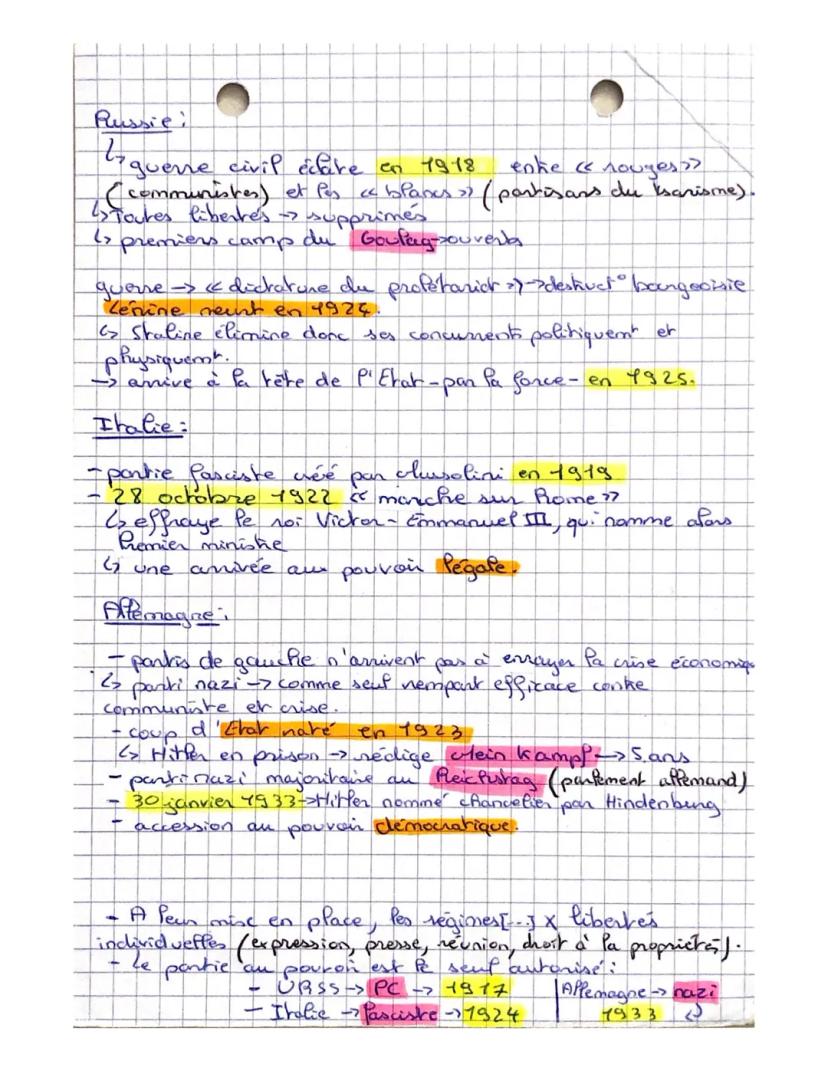 Russie :
↳ guerre civil éclate en 1918 entre « rouges »
(communistes) et les « blancs » (partisans du tsarisme).
↳ Toutes libertés → supprimés
↳ premiers camp du Goulag → ouverts
guerre → « dictature du prolétariat » → destruct° bourgeoisie
Lénine meurt en 1924.
↳ Staline élimine donc ses concurrents politiquemt et
physiquemt.
→ arrive à la tête de l'Etat - par la force - en 1925.
Italie :
- partie fasciste créé par Mussolini en 1919
- 28 octobre 1922 « marche sur Rome »
↳ effraye le roi Victor-Emmanuel III, qui nomme alors
Premier ministre
↳ une arrivée au pouvoir légale.
Allemagne :
- partis de gauche n'arrivent pas à enrayer la crise économiq
↳ parti nazi → comme seul rempart efficace contre
communiste et crise.
- coup d'Etat raté en 1923
↳ Hitler en prison → rédige Mein Kampf → 5 ans
- parti nazi majoritaire au Reichstag (parlement allemand)
- 30 janvier 1933 → Hitler nommé chancelier par Hindenburg
- accession au pouvoir démocratique.
- A leur mise en place, les régimes [...] X libertés
individuelles (expression, presse, réunion, droit à la propriétés).
- Le partie au pouvoir est le seul autorisé :
- URSS → PC → 1917 | Allemagne → nazi
- Italie → fasciste → 1924 1933 ↵